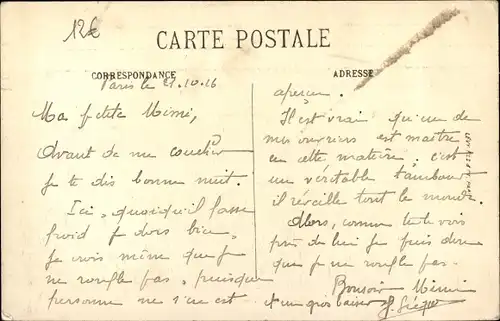 12€
CARTE POSTALE
CORRESPONDANCE
ADRESSE
Paris le 21.10.16
Ma petite Mimi,
Avant de me coucher
je te dis bonne nuit.
Ici, quoiqu'il fasse
froid je dors bien,
je crois même que je
ne ronfle pas, puisque
personne ne s'en est
aperçu.
Il est vrai qu'un de
mes ouvriers est maître
en cette matière, c'est
un véritable tambour
il réveille tout le monde.
Alors, comme tu le vois
près de lui je puis dire
que je ne ronfle pas.
Bonsoir Mimi
et un gros baiser